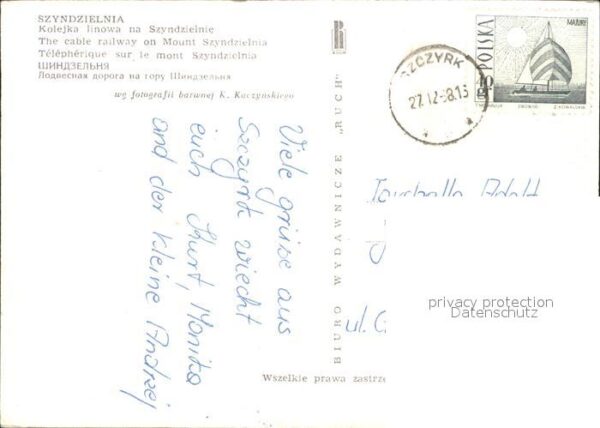 SZYNDZIELNIA
Kolejka linowa na Szyndzielnię
The cable railway on Mount Szyndzielnia
Téléphérique sur le mont Szyndzielnia
ШИНДЗЕЛЬНЯ
Подвесная дорога на гору Шиндзельня
wg fotografii barwnej K. Kaczyńskiego
Viele grüse aus
Szczyrk wiecht
euch Kurt, Monika
and der kleine Andrzej
BIURO WYDAWNICZE „RUCH"
Wszelkie prawa zastrze
SZCZYRK
27.12.68.15
POLSKA
MAZURY
ul.
privacy protection
Datenschutz